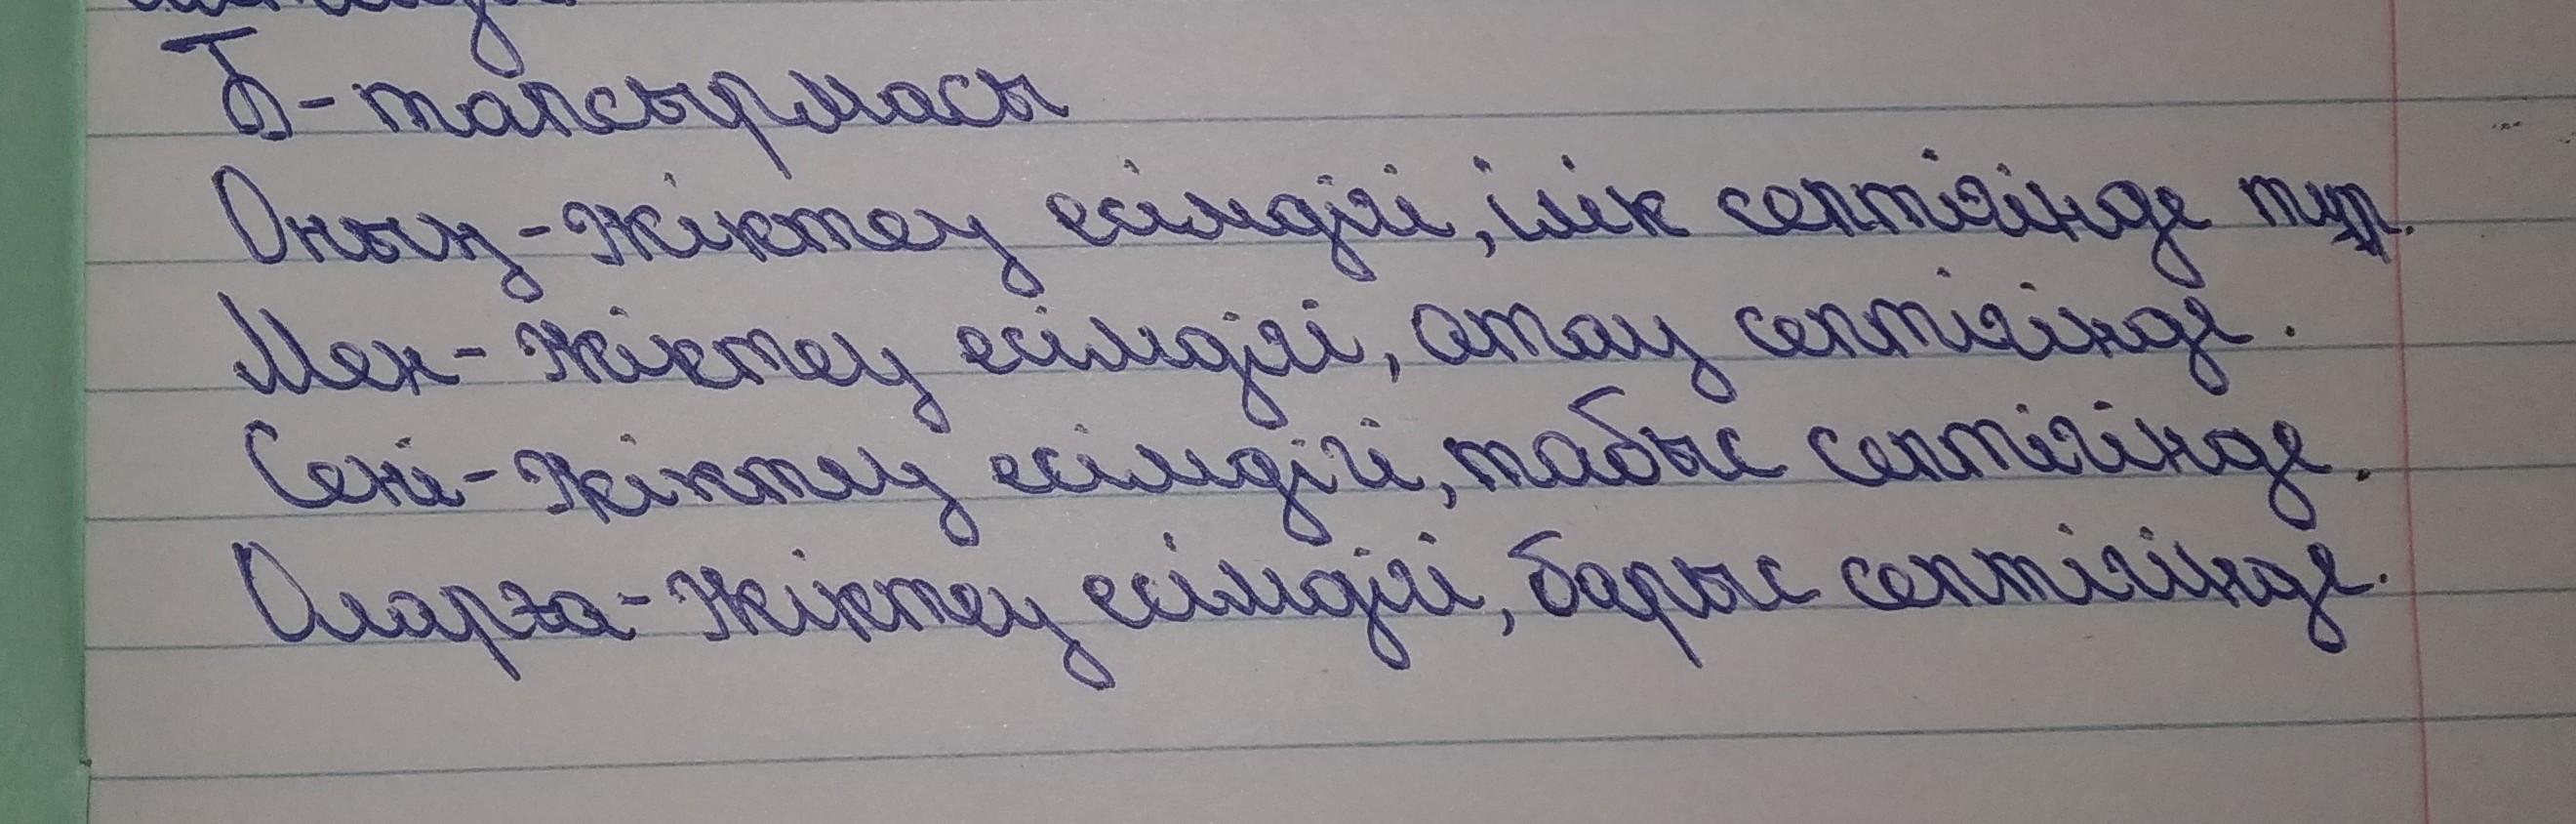 Б-тапсырмасы
Оның-Жіктеу есімдігі, ілік септігінде тұр.
Мен-Жіктеу есімдігі, атау септігінде.
Сені-Жіктеу есімдігі, табыс септігінде.
Оларға-Жіктеу есімдігі, барыс септігінде.